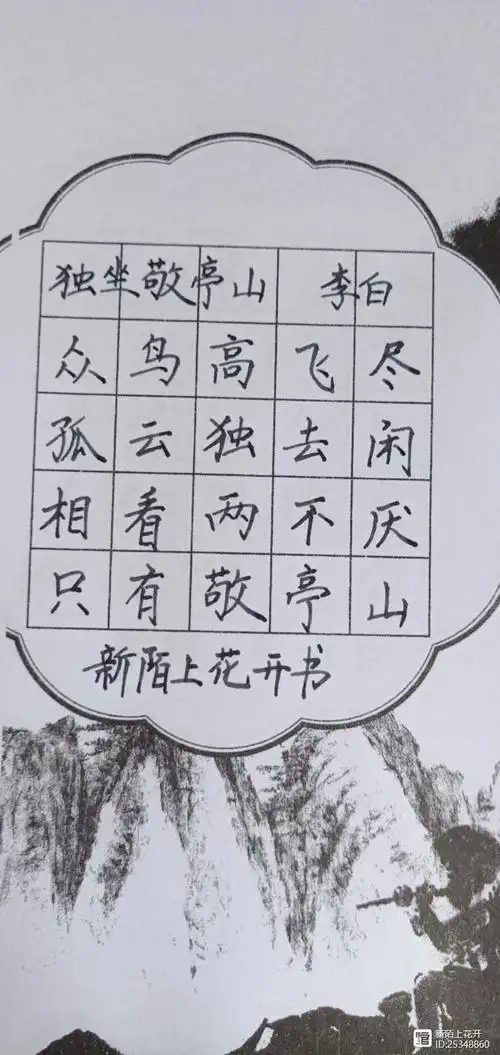 独坐敬亭山 李白
众鸟高飞尽
孤云独去闲
相看两不厌
只有敬亭山
新陌上花开书
新陌上花开
ID:25348860